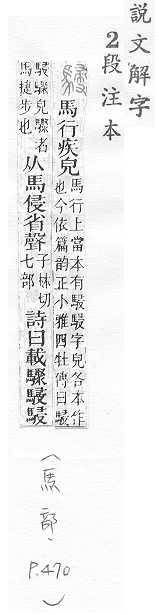 說文解字
2段注本
駸 馬行疾皃 馬行上當本有駸駸字皃各本作
也今依篇韵正小雅四牡傳曰駸
駸駸皃驟者
馬捷步也
从馬侵省聲 子林切
七部
詩曰載驟駸駸
(馬部, P.470)